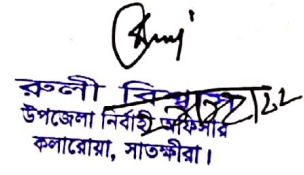 রুলী বিশ্বাস
উপজেলা নির্বাহী অফিসার
কলারোয়া, সাতক্ষীরা।